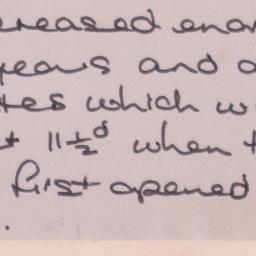 creased enor
years and a
tes which w
t 11½ᵈ when t
first opened
.